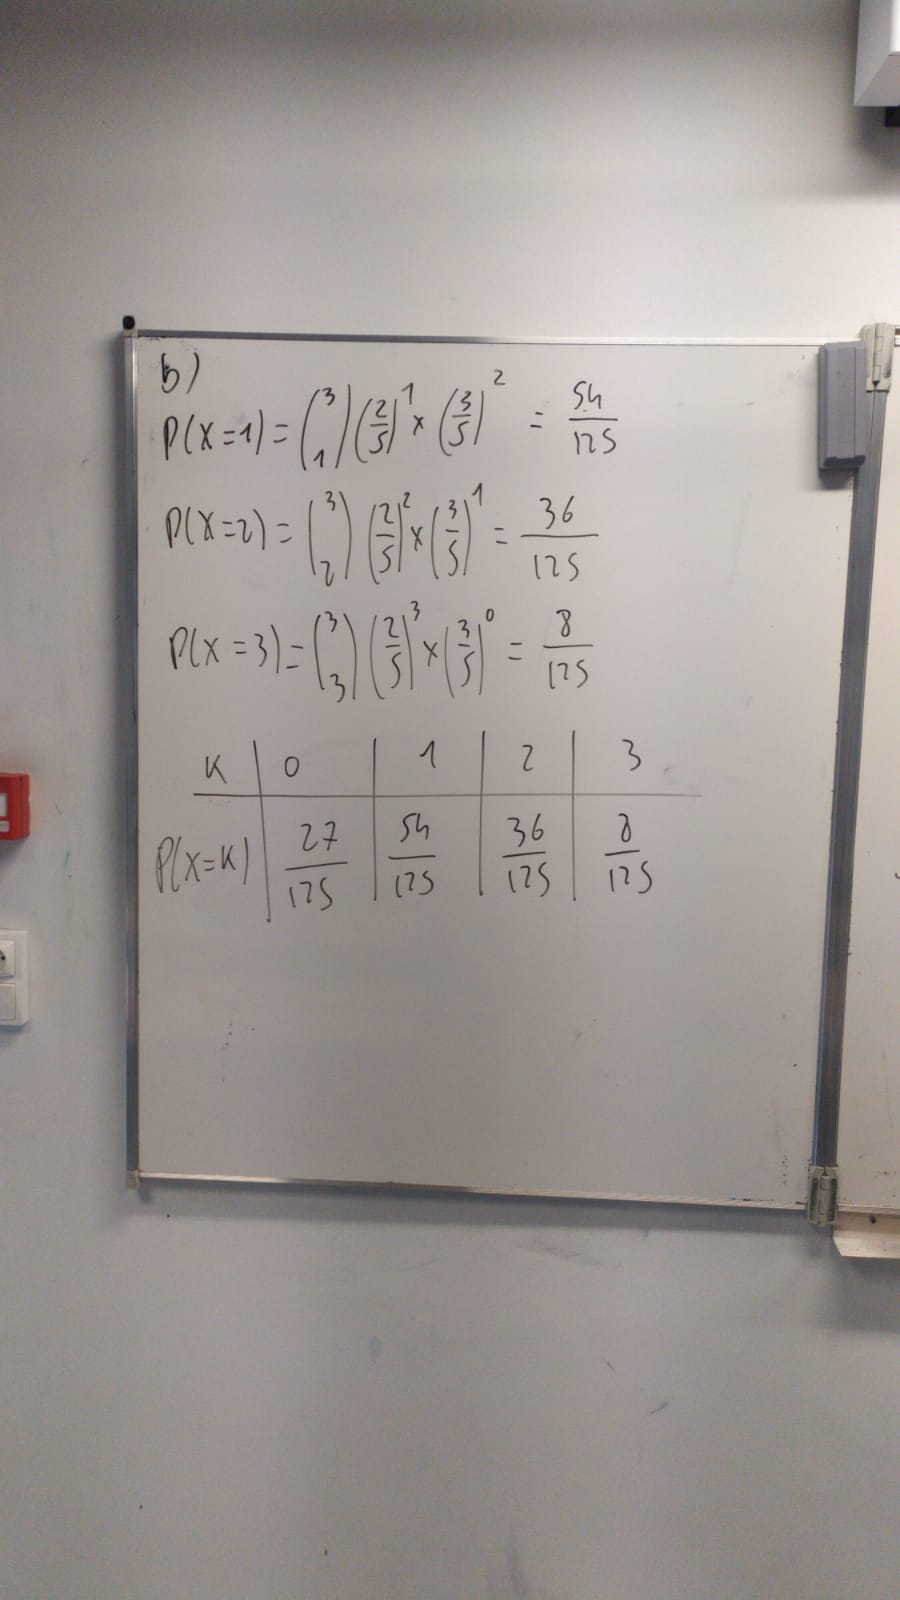 b)
P(X=1) = (3 1) (2/5)^1 × (3/5)^2 = 54/125
P(X=2) = (3 2) (2/5)^2 × (3/5)^1 = 36/125
P(X=3) = (3 3) (2/5)^3 × (3/5)^0 = 8/125
K | 0 | 1 | 2 | 3
P(X=K) | 27/125 | 54/125 | 36/125 | 8/125